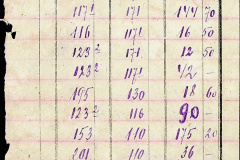 117¹ 171 144 70
116 117¹ 16 50
123² 171 12 50
123² 117¹ 1/2 –
195 130 18 60
123² 116 90 –
153 110 175 20
201 110 36 –